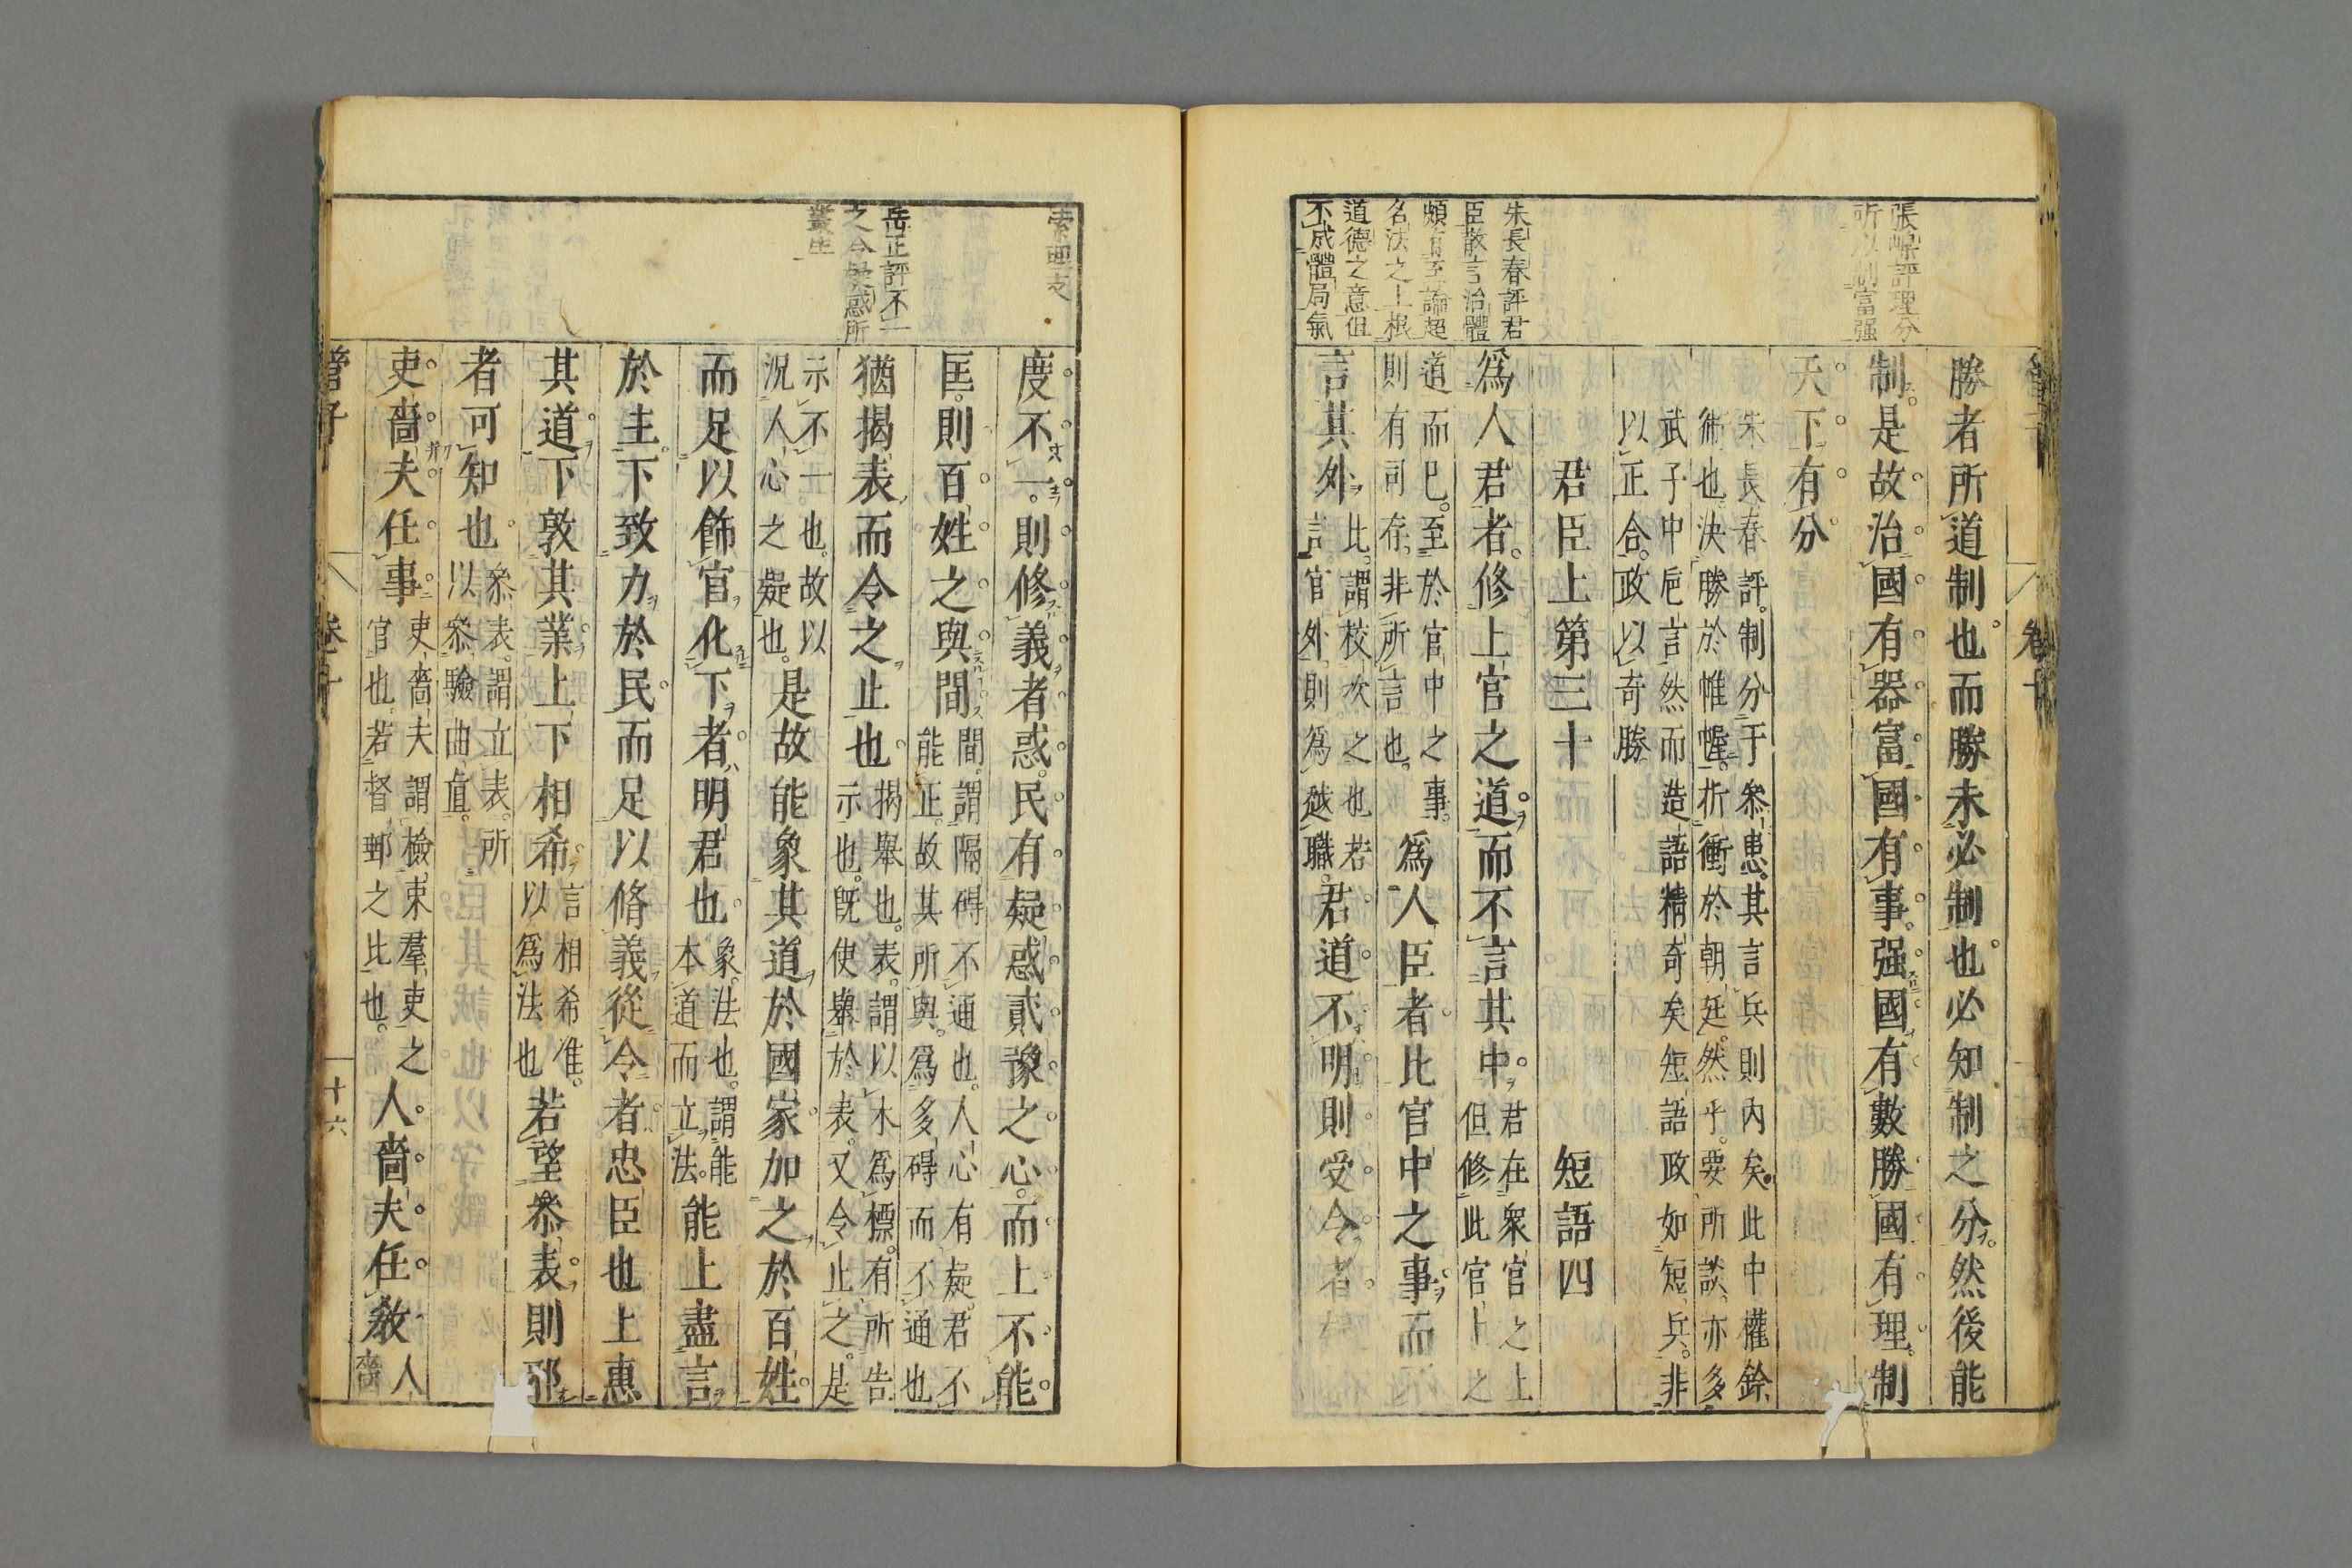 張嵲評理分
所以制富强
朱長春評君
臣散言治體
頗有至論超
名法之上根
道德之意但
不成體局氣
勝者所道制也而勝未必制也必知制之分然後能
制是故治國有器富國有事强國有數勝國有理制
天下有分
朱長春評制分于叅患其言兵則內矣此中權銓
術也決勝於帷幄折衝於朝廷然乎要所談亦多
武子中巵言然而造語精奇矣短語政如短兵非
以正合政以奇勝
君臣上第三十 短語四
爲人君者修上官之道而不言其中
君在衆官之上
但修此官上之
道而已至於官中之事
則有司存非所言也
爲人臣者比官中之事而
言其外
此謂校次之也若
言官外則爲越職
君道不明則受令者
管子
卷十
十六
索理之
岳正評不一
之令疑惑所
叢生
度不一則修義者惑民有疑惑貳豫之心而上不能
匡則百姓之與間
間謂隔碍不通也人心有疑君不
能正故其所與爲多碍而不通也
猶揭表而令之止也
揭舉也表謂以木爲標有所告
示也既使舉於表又令止之是
示不一也故以
況人心之疑也
是故能象其道於國家加之於百姓
而足以飾官化下者明君也
象法也謂能
本道而立法
能上盡言
於主下致力於民而足以脩義從令者忠臣也上惠
其道下敦其業上下相希
言相希准
以爲法也
若望叅表則邪
者可知也
叅表謂立表所
以叅驗曲直
吏嗇夫任事
吏嗇夫謂檢束羣吏之
官也若督郵之比也
人嗇夫任教
人
嗇
管子
卷十
十六